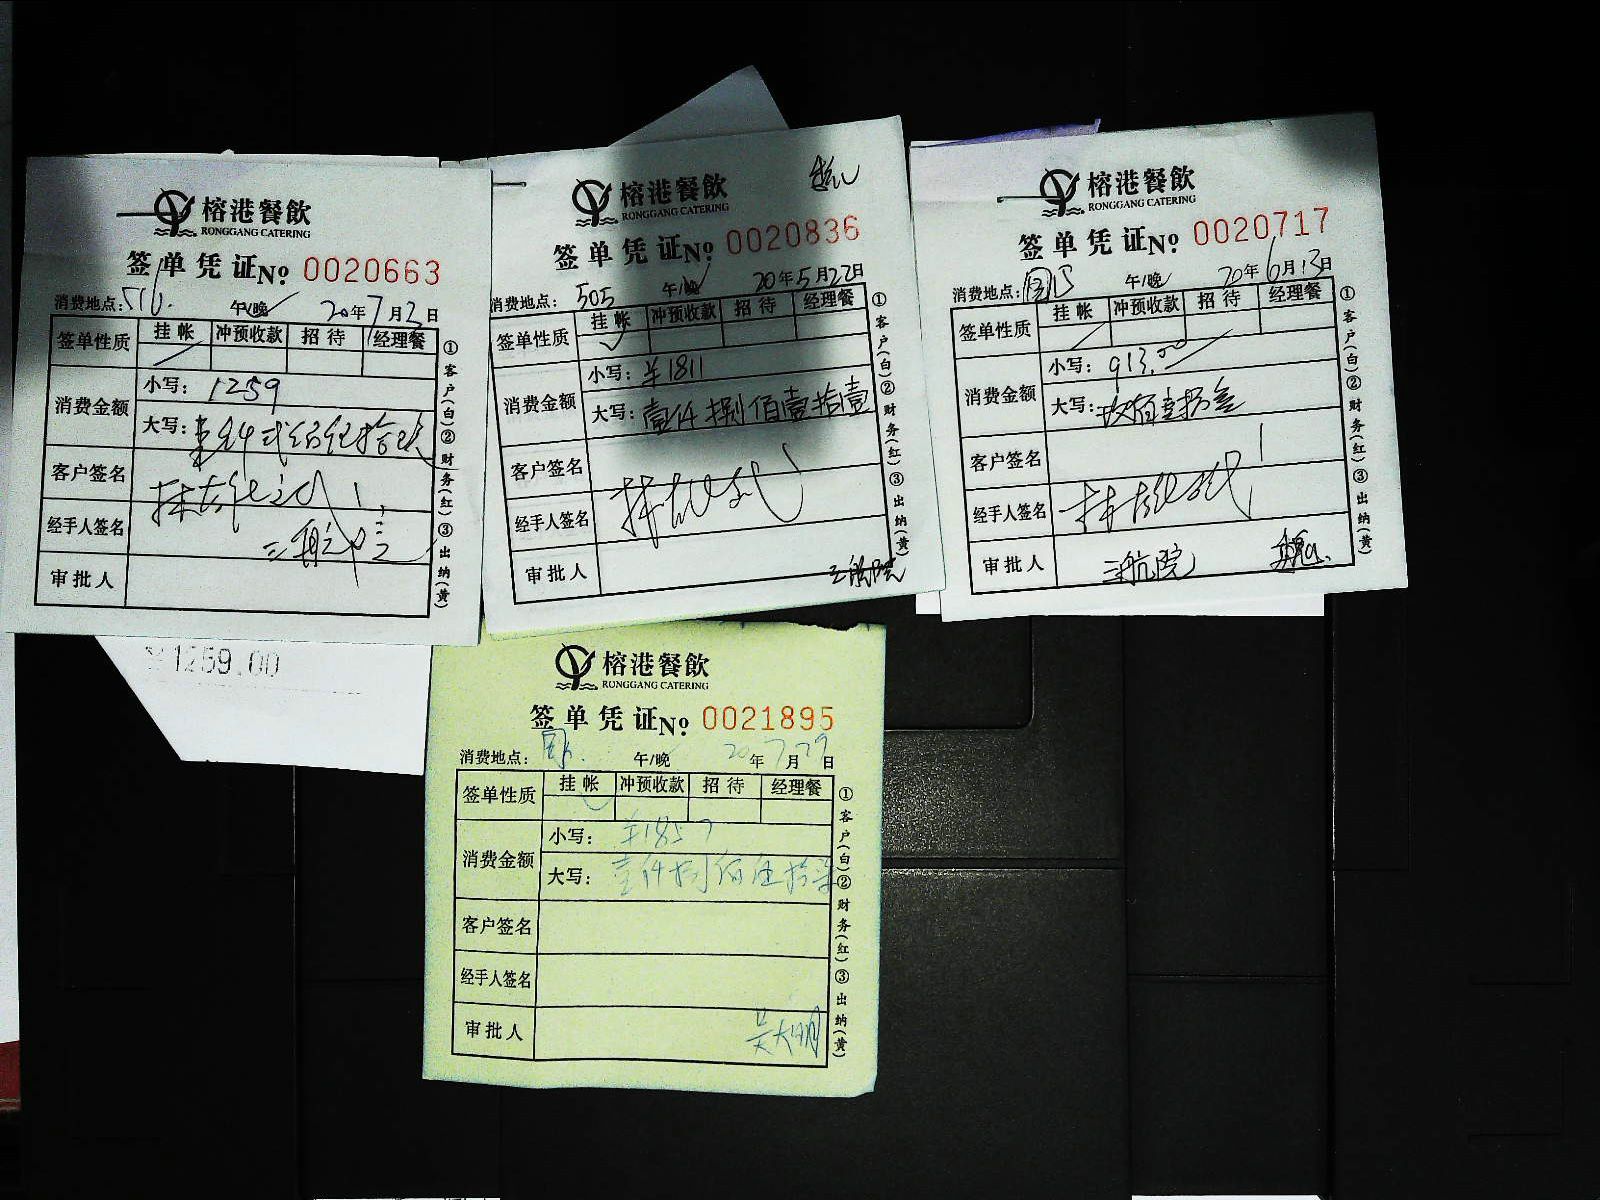 榕港餐飲
RONGGANG CATERING
签单凭证No 0020663
消费地点：516. 午/晚 20年7月2日
签单性质 挂帐 冲预收款 招待 经理餐
消费金额 小写：1259
大写：壹仟贰佰伍拾玖
客户签名
经手人签名
三航院
审批人
①客户(白)②财务(红)③出纳(黄)
¥1259.00
榕港餐飲
RONGGANG CATERING
签单凭证No 0020836
消费地点：505 午/晚 20年5月22日
签单性质 挂帐 冲预收款 招待 经理餐
消费金额 小写：¥1811
大写：壹仟捌佰壹拾壹
客户签名
经手人签名
审批人 三航院
①客户(白)②财务(红)③出纳(黄)
榕港餐飲
RONGGANG CATERING
签单凭证No 0020717
消费地点： 午/晚 20年6月13日
签单性质 挂帐 冲预收款 招待 经理餐
消费金额 小写：913.00
大写：玖佰壹拾叁
客户签名
经手人签名
审批人 三航院
①客户(白)②财务(红)③出纳(黄)
榕港餐飲
RONGGANG CATERING
签单凭证No 0021895
消费地点： 午/晚 20年7月29日
签单性质 挂帐 冲预收款 招待 经理餐
消费金额 小写：¥1857
大写：壹仟捌佰伍拾柒
客户签名
经手人签名
审批人 吴大明
①客户(白)②财务(红)③出纳(黄)